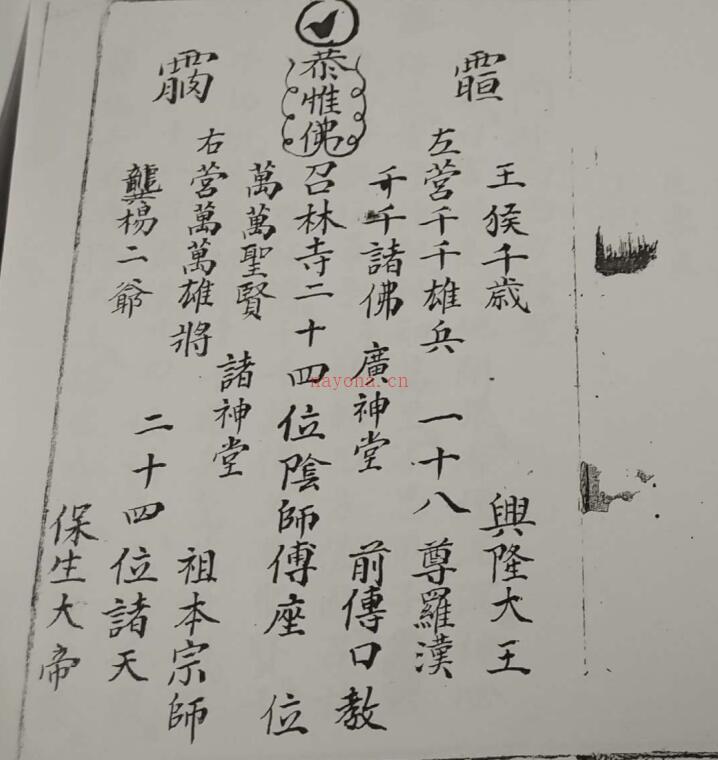 王侯千歲 興隆大王
左營千千雄兵 一十八尊羅漢
千千諸佛 廣神堂 前傳口教
恭惟佛 召林寺二十四位陰師傅座位
萬萬聖賢 諸神堂 祖本宗師
右營萬萬雄將 二十四位諸天
龔楊二爺 保生大帝
nayona.cn